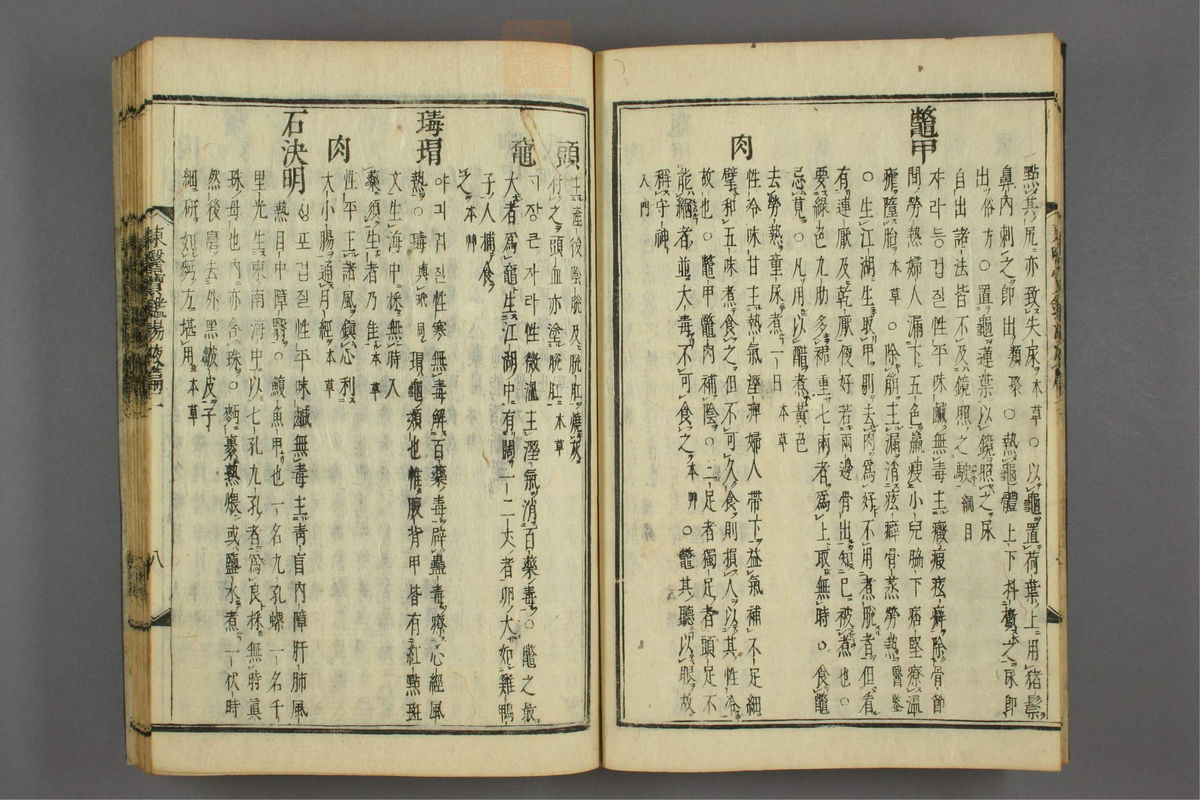 點其尻亦致失尿本草○以龜置荷葉上用猪鬃
鼻內刺之卽出類聚○熱龜體上下料檄之尿卽
出俗方○置龜蓮葉以鏡照之尿
自出諸法皆不及鏡照之駛綱目
鼈甲
쟈라등겁질性平味鹹無毒主癥瘕痃癖除骨節
間勞熱婦人漏下五色羸瘦小兒脇下痞堅療溫
瘧墮胎本草○除崩主漏消痃癖骨蒸勞熱醫鑒
○生江湖生取甲剔去肉爲好不用煮脫者但看
有連厭及乾厭便好若兩邊骨出知已被煮也○
要綠色九肋多裙重七兩者爲上取無時○食鼈
忌莧○凡用以醋煮黃色
去勞熱童尿煮一日本草
肉
性冷味甘主熱氣溼痺婦人帶下益氣補不足細
擘和五味煮食之但不可久食則損人以其性冷
故也○鼈甲鼈肉補陰○三足者獨足者頭足不
能縮者並大毒不可食之本草○鼈其聽以眼故
稱守神
入門
頭
主産後陰脫及脫肛燒灰
付之頭血亦塗脫肛本草
黿
ᄀᆞ장큰쟈라性微溫主溼氣消百藥毒○鼈之最
大者爲黿生江湖中有闊一二丈者卵大如雞鴨
子人捕食
之本草
瑇瑁
야긔겁질性寒無毒解百藥毒辟蠱毒療心經風
熱○瑇與玳同瑁龜類也惟腹背甲皆有紅點斑
文生海中採無時入
藥須生者乃佳本草
肉
性平主諸風鎭心利
大小腸通月經本草
石決明
싱포겁질性平味鹹無毒主靑盲內障肝肺風
熱目中障瞖○鰒魚甲也一名九孔螺一名千
里光生東南海中以七孔九孔者爲良採無時眞
珠母也內亦含珠○麵裹熟煨或鹽水煮一伏時
然後磨去外黑皺皮子
細研如麪方堪用本草
東醫寶鑑湯液篇二 八